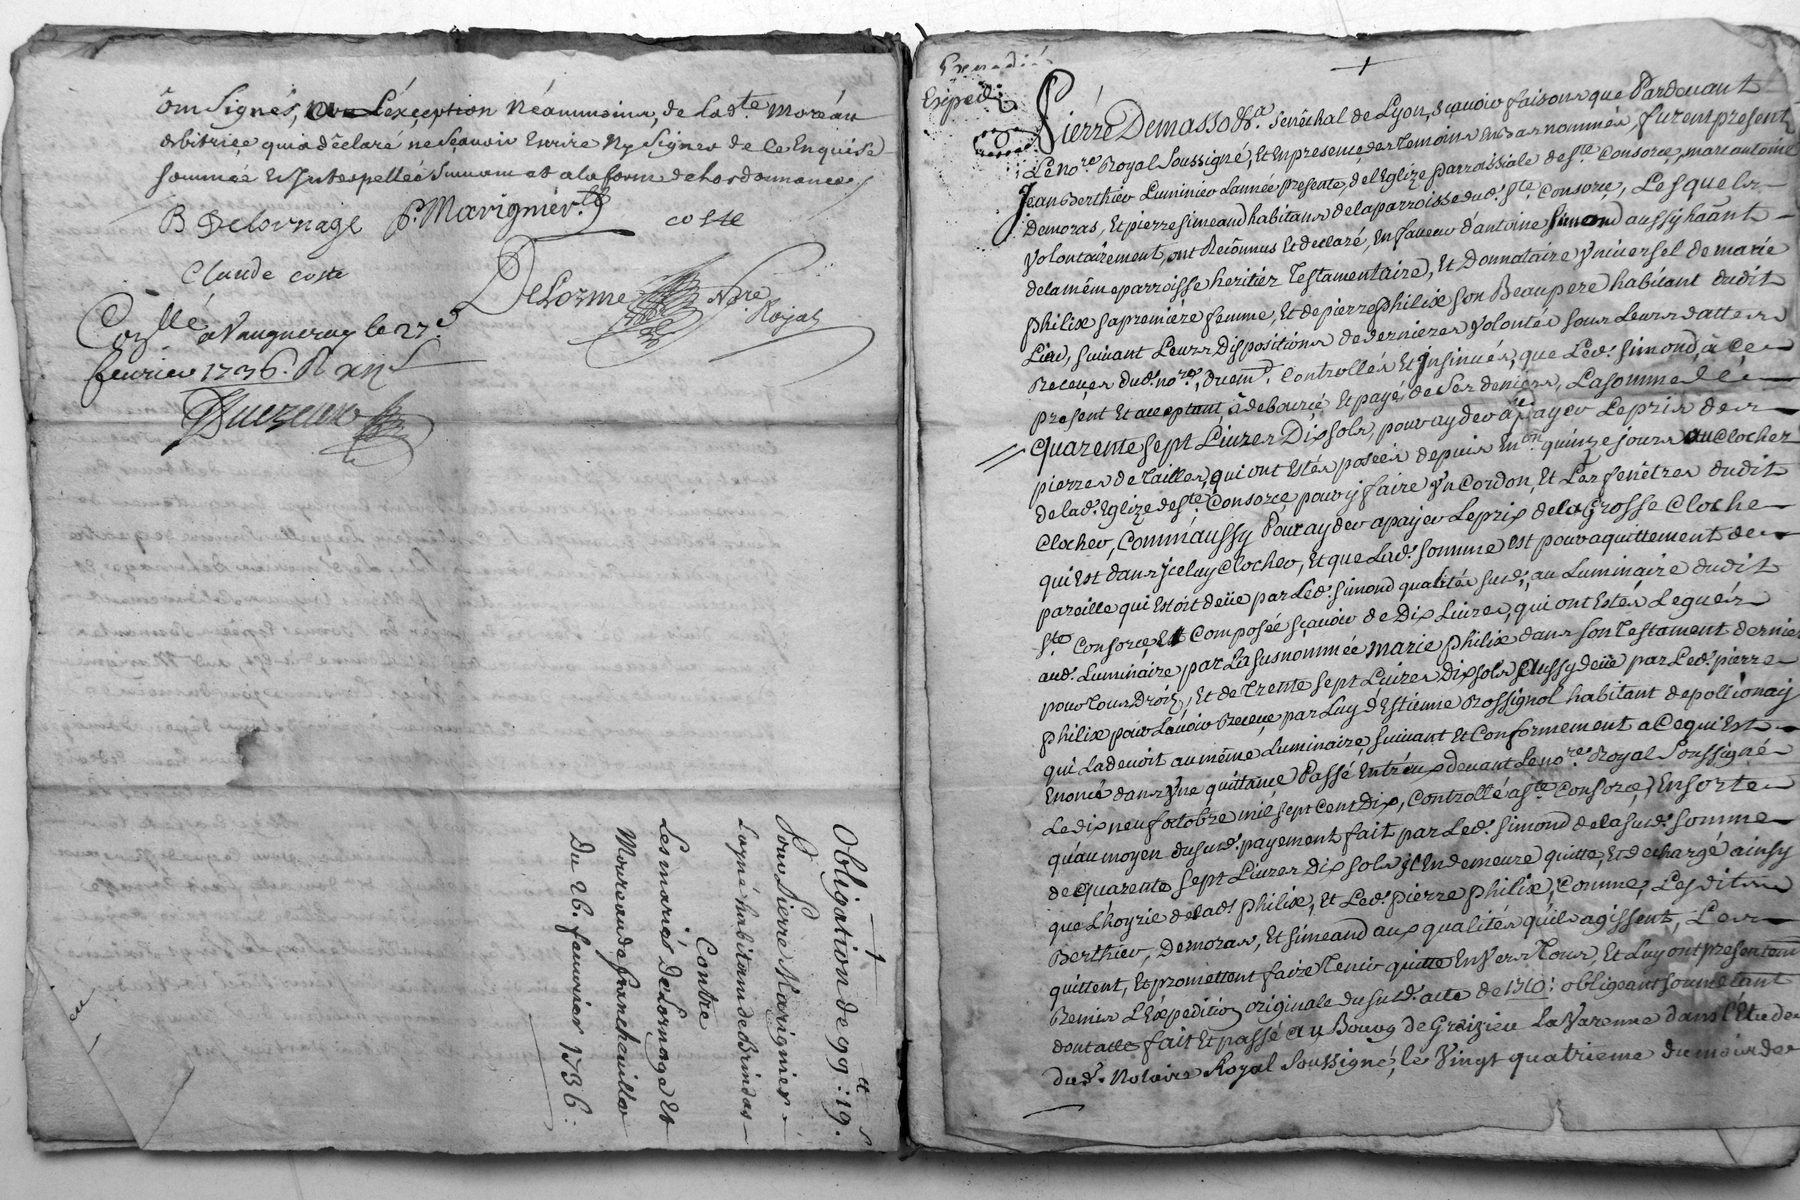 ont Signés, Néanmoins, de Lad.te Moréau
obtrice qui a déclaré ne sçavoir Ecrire Ny Signer de ce Enquise
sommée Et Interpellée Suivant et a la forme de Lordonnance
B Delornage P. Marignier coste
Claude coste
Delorme No.re Royal
Con.llé a Vaugneray le 27.e
feurier 1736. R
Obligation de 99.tt : 19.s
Pour Pierre Marignier
habitant de Brindas
Contre
Les mariés De Lornage Et
Moureau de francheuille
Du 26. feuurier 1736 :
Expedié
Pierre Demasso &.a Senéchal de Lyon, sçauoir faisons que Pardeuant
Le no.re Royal Soussigné, Et En presence des Temoins En bas nommés, furent present
Jean Berthier Luminier Lannée presente, de l'Eglize parroissiale de S.te Consorce, marc antoine
Demoras, Et pierre Simeand habitans de la parroisse dud. S.te Consorce, Lesquels
Volontairement, ont Recônnus Et declaré, En faueur d'antoine Simond aussy hãant
de la même parroisse heritier Testamentaire, Et Donnataire Vniuersel de marie
philix sa premiere femme, Et de pierre philix son Beaupere habitant dudit
Lieu, suiuant Leurs Dispositions de dernieres Volontés sous Leurs dattes
Receües dud. no.re, Duëm.t Controllés Et Insinués, que Led. Simond, à ce
present Et acceptant à deboursé Et payé, de Ses deniers, La somme de
quarente sept Liures Dix sols, pour ayder a payer Le prix des
pierres de Tailles, qui ont Estés posées depuis En.on quinze jours au Clocher
de lad. Eglize de S.te Consorce, pour y faire Vn Cordon, Et Les fenêtres dudit
Clocher, Comm'aussy Pour ayder a payer Le prix de la Grosse Cloche
qui Est dans Jceluy Clocher, Et que Lad. somme est pour aquittement de
pareille qui Estoit deüe par Led. Simond qualités susd. au Luminaire dudit
S.te Consorce, Et Composée sçauoir de Dix Liures, qui ont Estés Legués
aud. Luminaire par La susnommée marie philix dans son Testament dernier
pour Tous Droits, Et de Trente sept Liures Dix sols Aussy deüe par Led. pierre
philix pour Lauoir Receue par Luy d'Estienne Rossignol habitant de pollionay
qui La deuoit au même Luminaire, suiuant Et Conformement a Ce qui Est
Enoncé dans Vne quittance Passé Entr'eux deuant Le no.re Royal Soussigné
Le dix neuf octobre mil sept Cent Dix, Controllé a S.te Consorce, En sorte
qu'au moyen du susd. payement fait par Led. Simond de la susd. somme
de quarente sept Liures Dix sols il En demeure quitte, Et dechargé ainsy
que L'hoyrie de Lad. philix, Et Led. pierre philix, Comme, Lesdits
Berthier, Demoras, Et Simeand aux qualités quils agissent, Les
quittent, Et promettent faire Tenir quitte Enuers Tous, Et Luy ont presentem.t
Remis L'Expedition originale du susd. acte de 1710 : obligeant soumettant
dont acte fait Et passé au Bourg de Greizieu La Varenne dans l'Etude
dud. Notaire Royal Soussigné, le Vingt quatrieme du mois de